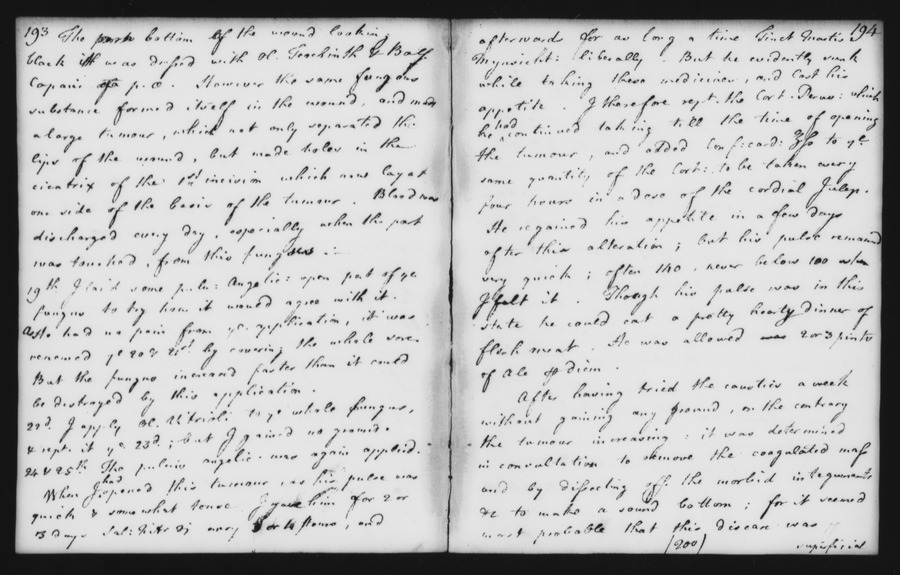 193
The bottom of the wound looking
black was dressed with Ol. Terebinth & Bals:
Copaiv: p. æ. However the same fungous
substance formed itself in the wound, and made
a large tumour, which not only separated the
lips of the wound, but made holes in the
cicatrix of the 1st incision which now lay at
one side of the basis of the tumour. Blood was
discharged every day, especially when the part
was touched, from this fungus :-
19th I laid some pulv: Angelic: upon part of ye
fungus to try how it would agree with it.
As He had no pain from ye application, it was
renewed ye 20 & 21st by covering the whole sore.
But the fungus increased faster than it could
be destroyed by this application.
22d. I apply Ol. Vitrioli to ye whole fungus,
& rept. it ye 23d; but I gained no ground.
24 & 25th The pulvis angelic: was again applied.
When I had opened this tumour, as his pulse was
quick & somewhat tense I gave him for 2 or
3 days Sal: Nitri every 3 or 4 hours, and
194
afterwards for as long a time Tinct Martis
Mynsicht: liberally. But he evidently sunk
while taking these medicines, and lost his
appetite. I therefore rept. the Cort. Peruv: which
he had continued taking till the time of opening
the tumour, and added Conf: card: ℥ss to ye
same quantity of the Cort: to be taken every
four hours in a dose of the cordial Julep.
He regained his appetite in a few days
after this alteration; but his pulse remained
very quick; often 140, never below 100 when
I felt it. Though his pulse was in this
state he could eat a pretty hearty dinner of
flesh meat. He was allowed 2 or 3 pints
of Ale ℔ diem.
After having tried the caustics a week
without gaining any ground, on the contrary
the tumour increasing: it was determined
in consultation to remove the coagulated mass
and by dissecting off the morbid integuments
&c to make a sound bottom; for it seemed
most probable that this disease was
(200)
superficial